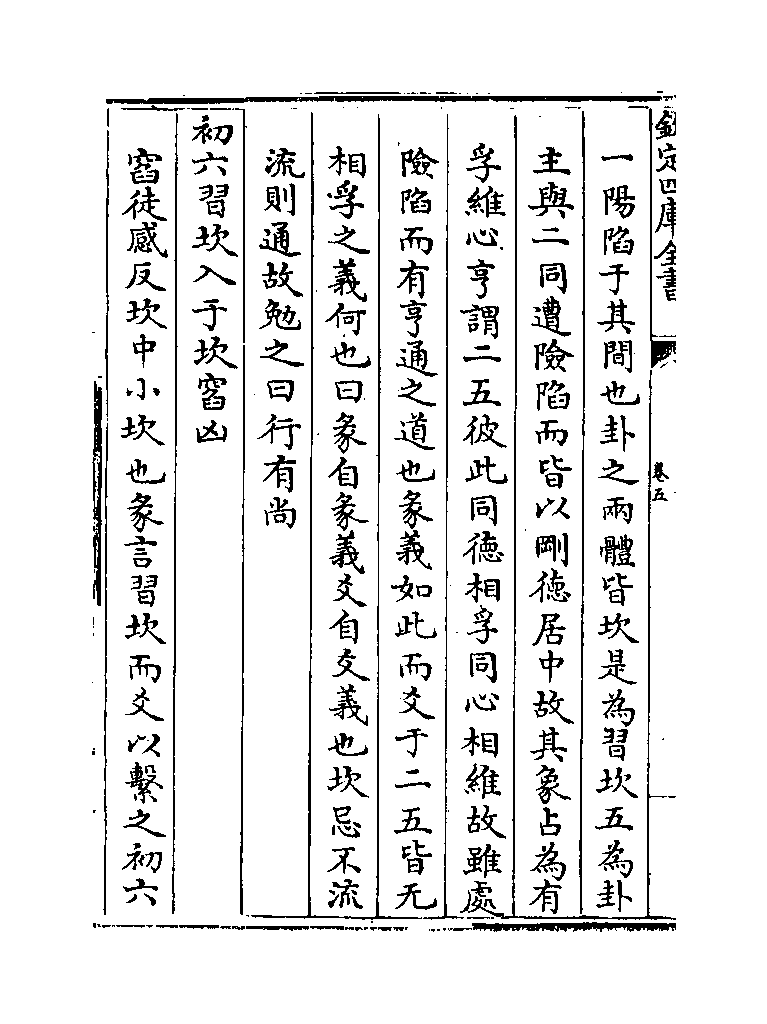 欽定四庫全書
卷五
一陽陷于其間也卦之兩體皆坎是為習坎五為卦
主與二同遭險陷而皆以剛徳居中故其象占為有
孚維心亨謂二五彼此同徳相孚同心相維故雖處
險陷而有亨通之道也彖義如此而爻于二五皆无
相孚之義何也曰彖自彖義爻自爻義也坎忌不流
流則通故勉之曰行有尚
初六習坎入于坎窞凶
窞徒感反坎中小坎也彖言習坎而爻以繫之初六